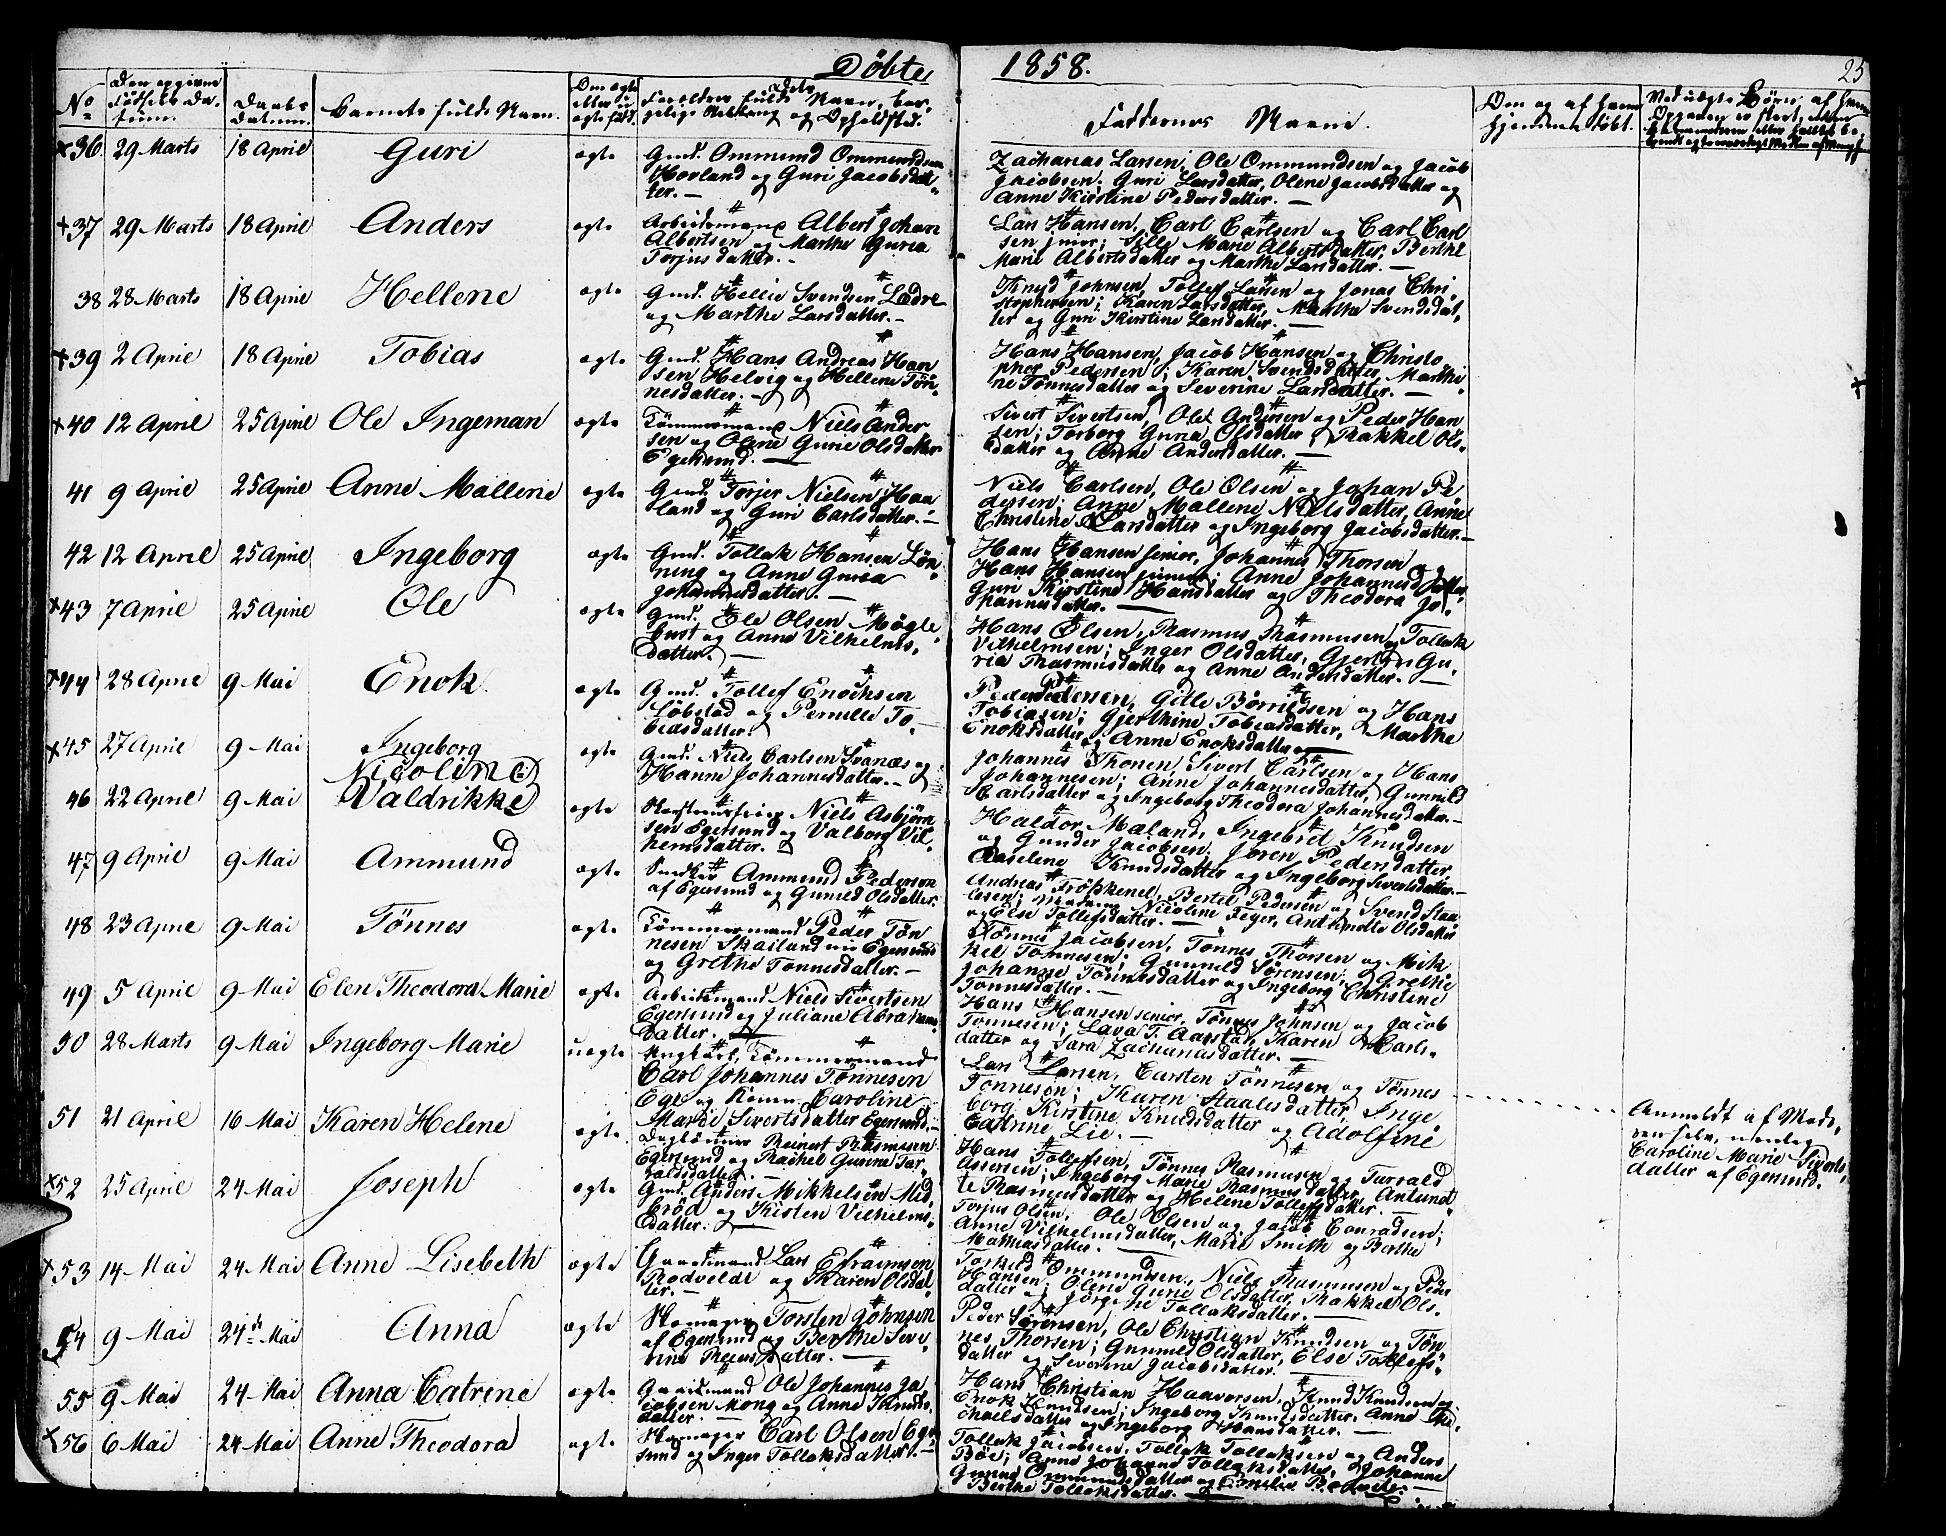 Döbte 1858. 25
No
Den opgivne Fødsels Datum.
Daabs Datum.
Barnets fulde Navn.
Om ægte eller uægte født.
Forældres fulde Navn, borgerlige Stilling og Opholdsted.
Faddernes Navne.
Om og af hvem hjemmedøbt.
×36. 29 Marts 18 April Guri ægte
Gmd. Ommund Ommundsen
Hovland og Guri Jacobsdat-
ter.-
Zacharias Larsen, Ole Ommundsen og Jacob
Jacobsen; Guri Larsdatter, Olene Jacobsdatter og
Anne Kirstine Pedersdatter. —
×37 29 Marts 18 April Anders ægte
Arbeidsmand Albert Johan
Albertsen og Marthe Guria
Torjusdatter.-
Lars Hansen, Carl Carlsen og Carl Carl
sen junior; Sille Marie Albertsdatter, Berthe
Marie Albertsdatter og Marthe Larsdatter. —
38 28 Marts 18 April Hellene ægte
Gmd. Hellie Svendsen Ledre
og Marthe Larsdatter.-
Knud Johnsen, Tollef Larsen og Jonas Chri-
stophersen; Karen Larsdatter, Martha Svendsdat-
ter og Guri Kirstine Larsdatter. —
×39 2 April 18 April Tobias ægte
Gmd. Hans Andreas Han
sen Helvig og Hellene Tøn
nesdatter. -
Hans Hansen, Jacob Hansen og Christo
pher Pedersen; Karen Svendsdatter, Marthi-
ne Tønnesdatter og Severine Larsdatter. —
×40 12 April 25 April Ole Ingeman ægte
Tömmermand Niels Ander
sen og Oline Gurie Olsdatter
Egersund. —
Sivert Sivertsen, Ole Andersen og Peder Han
sen; Torborg Guria Olsdatter, Rakkel Ols-
datter og Anne Andersdatter. —
41 9 April 25 April Anne Mallene ægte
Gmd. Torjer Nielsen Haa
land og Guri Carlsdatter.-
Niels Carlsen, Ole Olsen og Johan Pe
dersen; Anne Mallene Nielsdatter, Anne
Christine Larsdatter og Ingeborg Jacobsdatter.-
42 12 April 25 April Ingeborg ægte
Gmd. Tollak Hansen Løn-
ning og Anne Gurea
Johannesdatter.-
Hans Hansen senior, Johannes Thorsen og
Hans Hansen junior; Anne Johannesdatter,
Guri Kirstine Hansdatter og Theodora Jo-
hannesdatter. —
×43 7 April 25 April Ole ægte
Gmd. Ole Olsen Møgle
bust og Anne Vilhelms-
datter. —
Hans Olsen, Rasmus Rasmusen, og Tollak
Vilhelmsen; Inger Olsdatter, Gjertine Gu-
rie Rasmusdatter og Anne Andersdatter. —
×44 28 April 9 Mai Enok. ægte
Gmd. Tollef Enoksen
Løbstad og Pernille To-
biasdatter.
Peder Pedersen, Gitle Børrildsen og Hans
Tobiasen; Gjerthine Tobiasdatter, Marthe
Enoksdatter og Anne Enoksdatter —
×45 27 April 9 Mai Ingeborg ægte
Gmd. Niels Carlsen Svanæs og
Hanne Johannesdatter.-
Johannes Thorsen, Sivert Carlsen og Hans
Johannesen; Anne Johannesdatter, Gunnild
Carlsdatter og Ingeborg Theodora Johannesdatter.-
46 22 April 9 Mai Nicoline Valdrikke ægte
Skorsteensfeier Niels Asbjørn
sen Egersund og Valborg Vil-
hemsdatter.
Haldor Mæland, Ingebret Knudsen
og Gunder Jacobsen; Jøren Pedersdatter,
Aaselene Knudsdatter og Ingeborg Sivertsdatter.-
47 9 April 9 Mai Ammund ægte
Snedker Ammund Pedersen
af Egersund og Gunild Olsdatter.
Andreas Frøskenel, Bertel Pedersen og Svend Staa
lesen; Madam Nicoline Feyer, Anthendte Olsdatter
og Else Tollefsdatter. —
48 23 April 9 Mai Tönnes ægte
Tömmermand Peder Tøn
nesen Skailand Egersund
og Grethe Tønnesdatter. —
Tönnes Jacobsen, Tønnes Thorsen og Mik
kel Tønnesen; Gunnild Sørensen, Grethe
Johanne Tønnesdatter og Ingeborg Christine
Tønnesdatter. —
49 5 April 9 Mai Elen Theodora Marie ægte
Arbeidsmand Niels Sivertsen
Egersund og Juliane Abrahams
datter.
Hans Hansen senior, Tønnes Johnsen og Jacob
Tønnesen; Lava T. Aarstad, Karen Carls-
datter og Sara Zachariasdatter. —
50 28 Marts 9 Mai Ingeborg Marie uægte
Ungkarl, Tömmermand
Carl Johannes Tønnesen
Ege og Kone Caroline
Marie Sivertsdatter Egersund.-
Lars Larsen, Carsten Tønnesen og Tønnes
Tønnesen; Karen Staalesdatter, Inge-
borg Kirstine Knudsdatter og Adolfine
Catrine Lie. —
Anmeldt af Mode-
ren selv, nemlig
Caroline Marie Siverts-
datter af Egersund.
51 21 April 16 Mai Karen Helene ægte
Dagleier Reinert Rasmusen
Egersund og Rachel Gurine Tar-
valdsdatter. —
Hans Tollefsen, Tønnes Rasmusen og Turvald
Assersen; Ingeborg Marie Rasmusdatter, Antunet-
te Rasmusdatter og Helene Tollefsdatter. —
×52 25 April 24 Mai Joseph ægte
Gmd. Anders Mikkelsen Mid-
brød og Kisten Vilhelms-
datter. —
Torjus Olsen, Ole Olsen og Jacob Conradsen;
Anne Vilhelmsdatter, Marie Smith og Berthe
Mathiasdatter. —
×53 14 Mai 24 Mai Anne Lisebeth ægte
Gaardmand Lars Efraimsen
Rodvelde og Karen Olsdat-
ter. -
Torkild Ommundsen, Niels Rasmusen og Peder
Hansen; Olene Gurie Olsdatter, Rakkel Ols-
datter og Jörgine Tollaksdatter. —
54 9 Mai 24de Mai Anna ægte
Skomager Torsten Johnsen
af Egersund og Berthe Seve-
rine Reiersdatter. —
Peder Sørensen, Ole Christian Knudsen og Tøn
nes Thorsen; Gunnild Olsdatter, Else Tollefs-
datter og Severine Jacobsdatter. —
55 9 Mai 24 Mai Anna Catrine ægte
Gaardmand Ole Johannes Ja
cobsen Mong og Anne Knuds-
datter. —
Hans Christian Haavorsen, Knud Knudsen og
Enok Knudsen; Ingeborg Knudsdatter, Anne Mi-
chaelsdatter og Ingeborg Hansdatter. —
×56 6 Mai 24 Mai Anne Theodora ægte
Skomager Carl Olsen Eger
sund og Inger Tollaksdatter.-
Tollak Jacobsen, Tollak Tollaksen og Anders
Böe; Anne Johanne Tollaksdatter, Johanne
Gurine Ommundsdatter og Emilie
Berthe Tollaksdatter. —